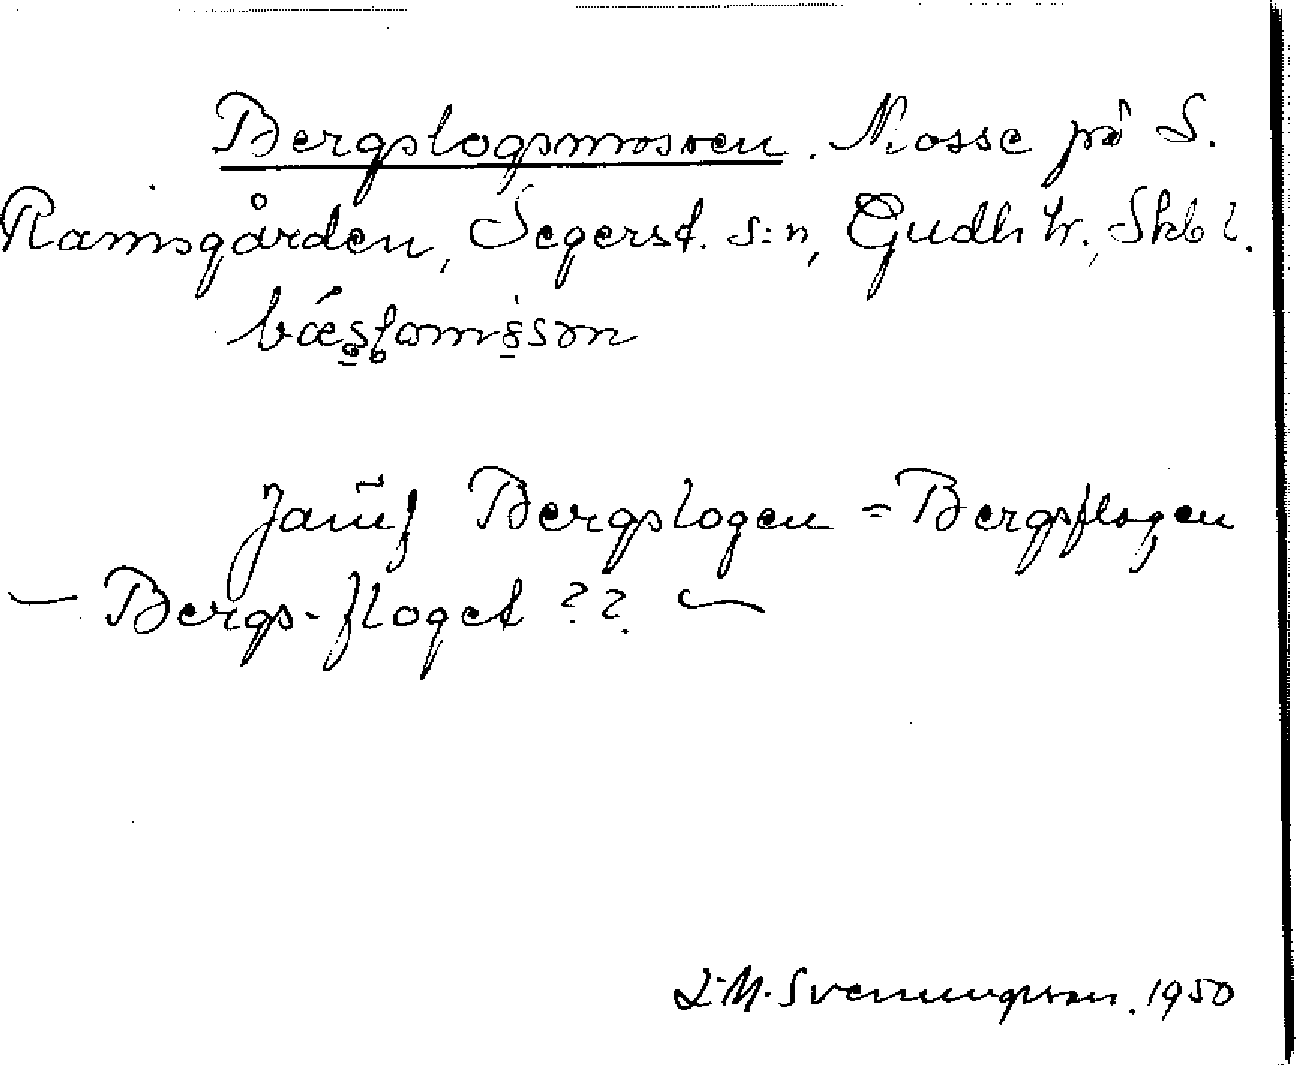 Bergslogsmossen. Mosse på S.
Ramsgården, Segerst. s:n, Gudh tr., Skb l.
Jamf Bergslogen = Bergsflogen
— Bergs-floget ?? —
L.M. Svenungsson. 1950